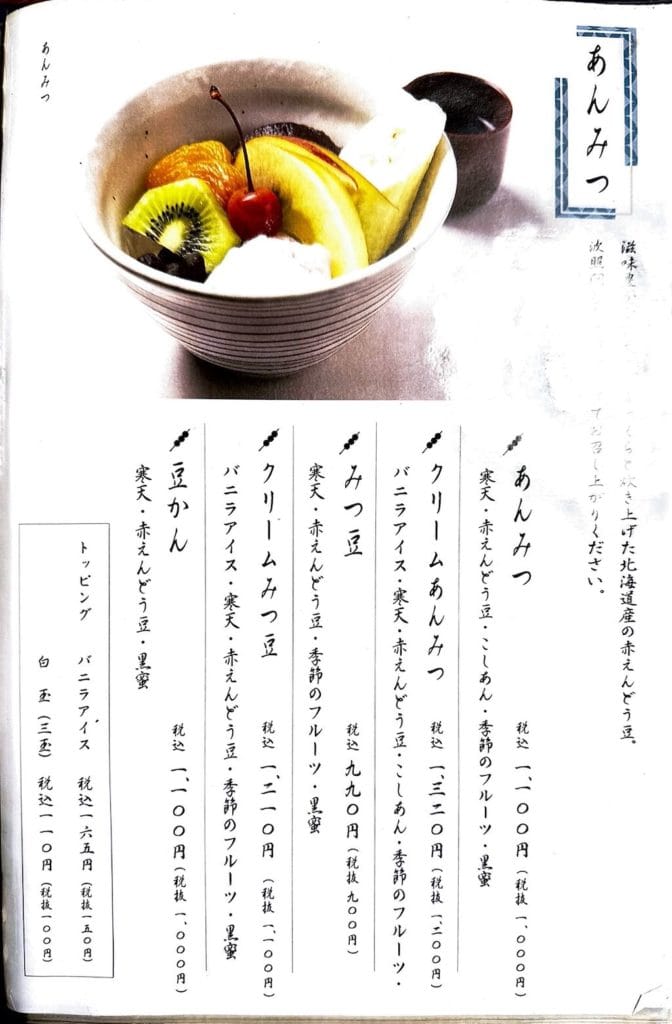 あんみつ
滋味
くらと炊き上げた北海道産の赤えんどう豆。
波照
てお召し上がりください。
あんみつ
税込 一、一〇〇円(税抜 一、〇〇〇円)
寒天・赤えんどう豆・こしあん・季節のフルーツ・黒蜜
クリームあんみつ
税込 一、三二〇円(税抜 一、二〇〇円)
バニラアイス・寒天・赤えんどう豆・こしあん・季節のフルーツ・
みつ豆
税込 九九〇円(税抜 九〇〇円)
寒天・赤えんどう豆・季節のフルーツ・黒蜜
クリームみつ豆
税込 一、二一〇円(税抜 一、一〇〇円)
バニラアイス・寒天・赤えんどう豆・季節のフルーツ・黒蜜
豆かん
税込 一、一〇〇円(税抜 一、〇〇〇円)
寒天・赤えんどう豆・黒蜜
トッピング バニラアイス 税込一六五円(税抜一五〇円)
白玉(三玉) 税込一一〇円(税抜一〇〇円)
あんみつ